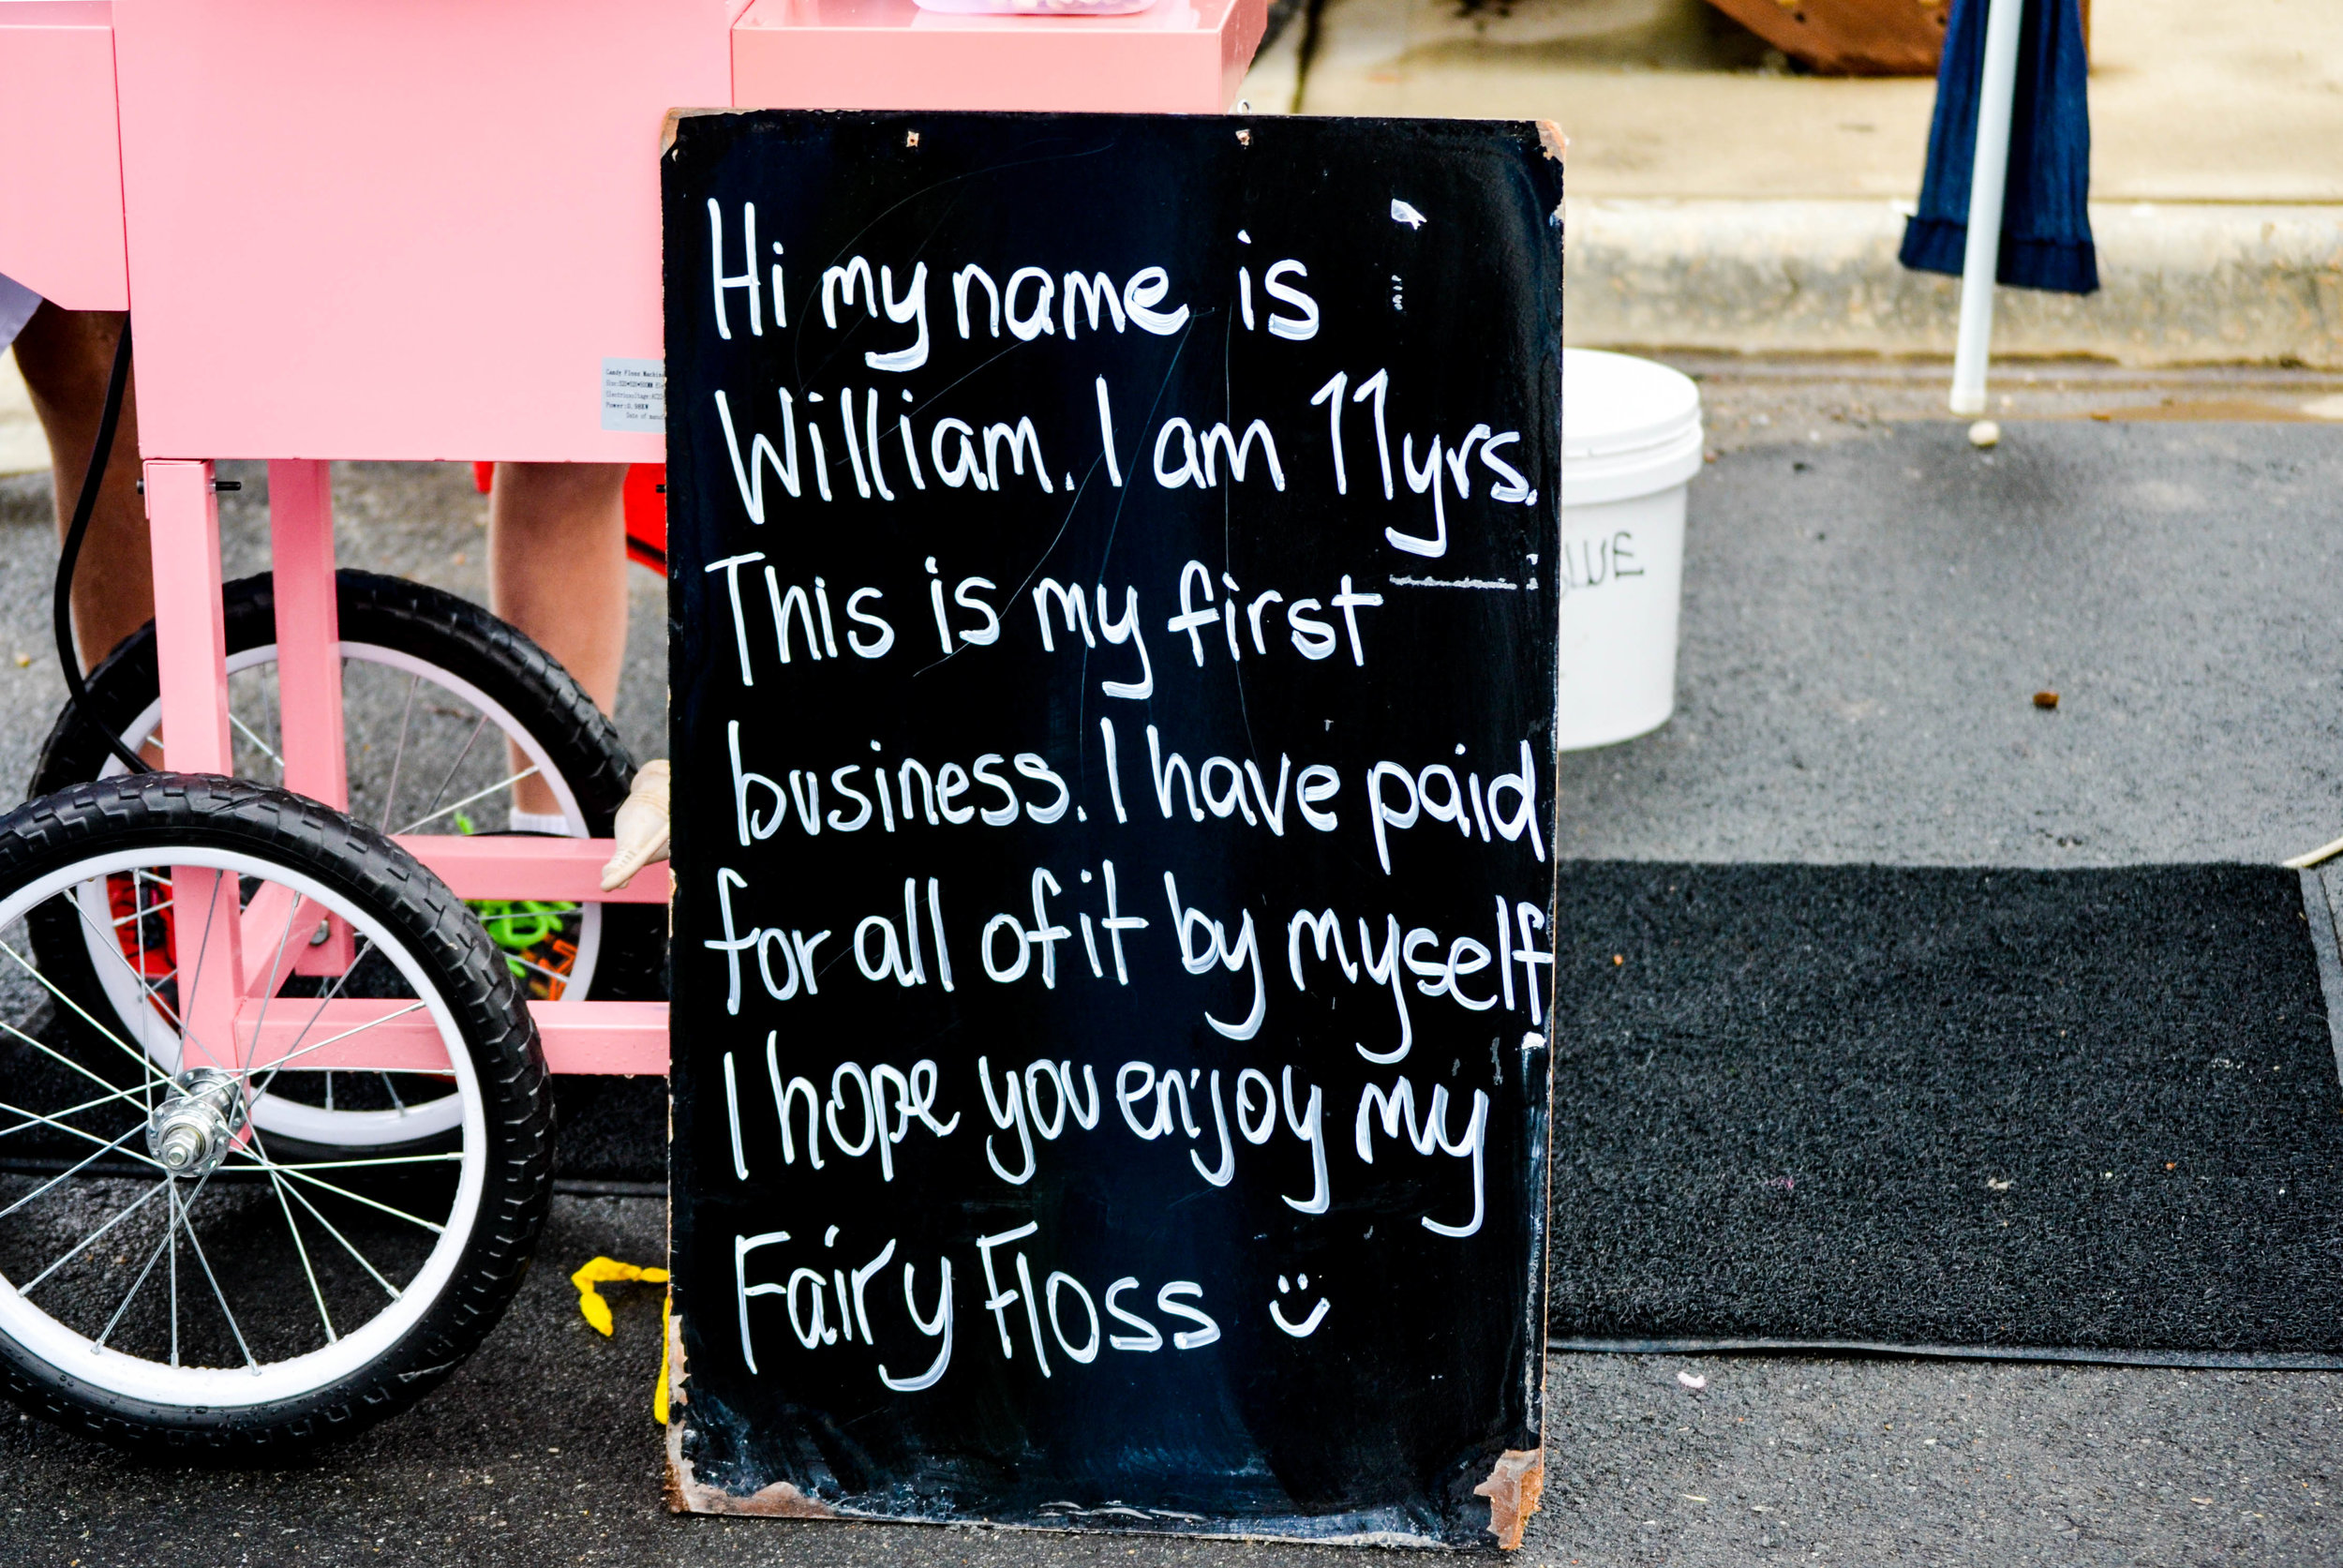 Hi my name is
William. I am 11yrs.
This is my first
business. I have paid
for all of it by myself
I hope you enjoy my
Fairy Floss
Candy Floss Machin
Power: 0.98KW
Date of